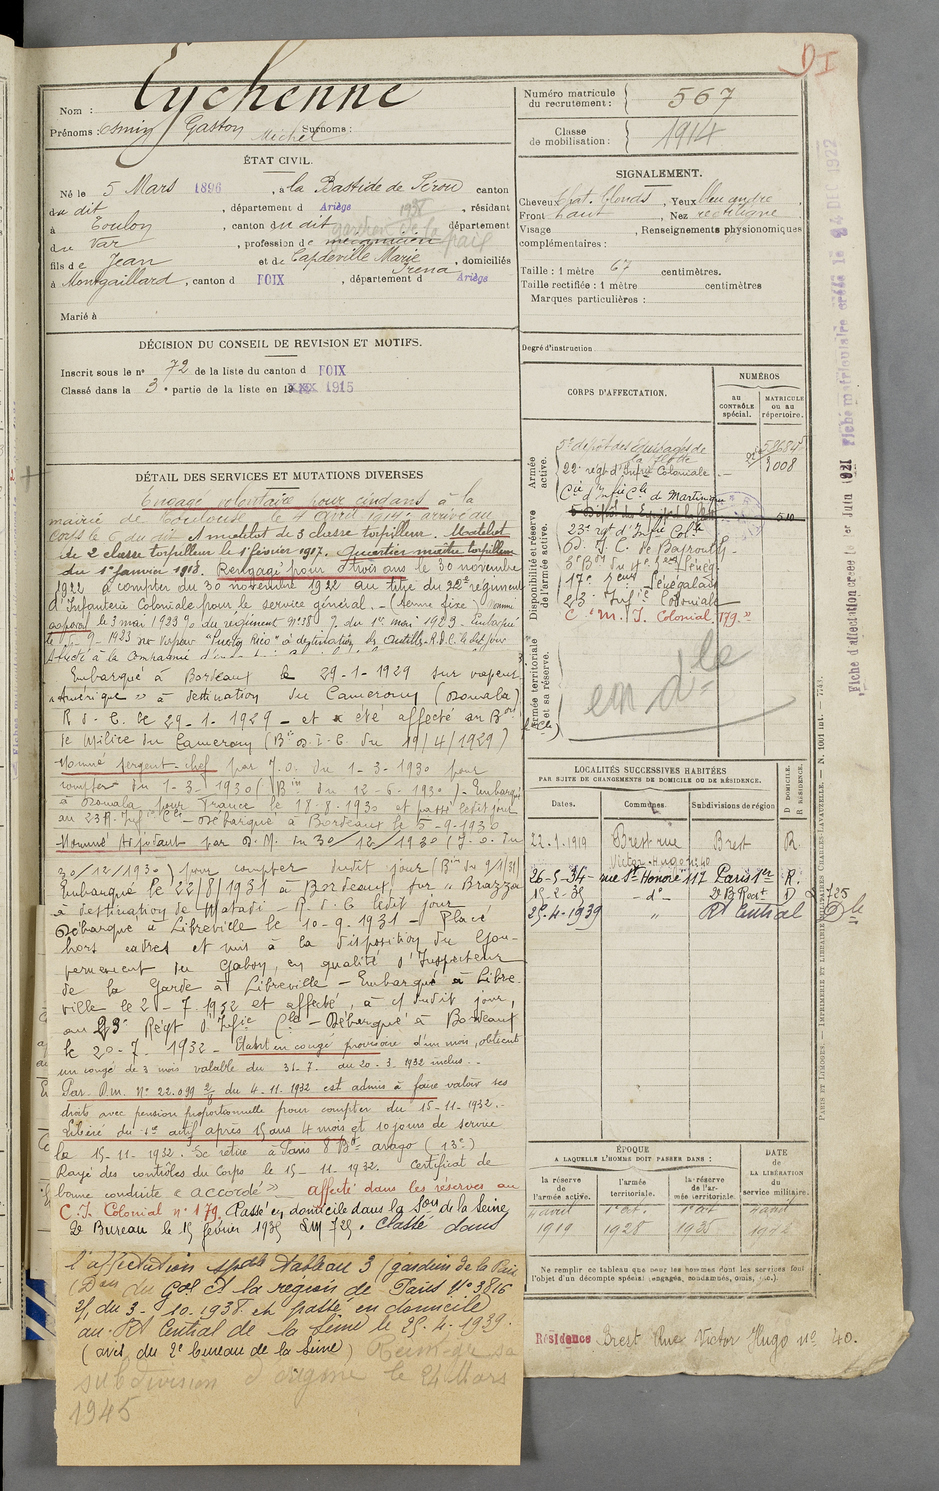 DI
Eychenne
Nom :
Prénoms : Osmin Gaston Michel Surnoms :
ÉTAT CIVIL.
Né le 5 Mars 1896, à la Bastide de Sérou canton
du dit, département d Ariège, résidant
à Toulon, canton du dit département
du Var, profession de mecanicien
1938 gardien de la paix
fils de Jean et de Capdeville Marie Irena, domiciliés
à Montgaillard, canton d FOIX, département d Ariège
Marié à
DÉCISION DU CONSEIL DE REVISION ET MOTIFS.
Inscrit sous le no 72 de la liste du canton d FOIX
Classé dans la 3e partie de la liste en 1915
DÉTAIL DES SERVICES ET MUTATIONS DIVERSES
Engagé volontaire pour cinq ans à la
mairie de Toulouse le 4 avril 1914. arrivé au
corps le 6 du dit. Matelot de 3 classe torpilleur. Matelot
de 2 classe torpilleur le 1er février 1917. Quartier maître torpilleur
du 1er janvier 1918. Rengagé pour trois ans le 30 novembre
1922 à compter du 30 novembre 1922 au titre du 22e régiment
d'Infanterie Coloniale pour le service général. - Nommé
caporal le 3 mai 1923 du régiment No 38 du 1er mai 1923. Embarqué
le 6-9-1923 sur vapeur "Puerto Rico" à destination des Antilles. R.D.C. le dit jour
Affecté à la Compagnie
Embarqué à Bordeaux le 29-1-1929 sur vapeur
"Amérique" à destination du Cameroun (Douala)
R.d.C. le 29-1-1929 - et a été affecté au Bon
de Milice du Cameroun (Bin O.I.C. du 19/4/1929)
Nommé sergent-chef par J.O. du 1-3-1930 pour
compter du 1-3-1930 (Bin du 12-6-1930). Embarqué
à Douala pour France le 18-8-1930 et passé ledit jour
au 23 R. Infie Cle - Débarqué à Bordeaux le 5-9-1930
Nommé Adjudant par D.M. du 30/12/1930 (J.O. du
30/12/1930) pour compter dudit jour (Bin du 9/1/31)
Embarqué le 22/8/1931 à Bordeaux sur "Brazza"
à destination de Matadi - R.d.C. ledit jour
Débarqué à Libreville le 10-9-1931 - Placé
hors cadres et mis à la disposition du Gou-
vernement du Gabon, en qualité d'Inspecteur
de la Garde à Libreville - Embarqué à Libre-
ville le 2-7-1932 et affecté, à c/ dudit jour,
au 23e Régt d'Infie Cle - Débarqué à Bordeaux
le 20-7-1932 - Etant en congé provisoire d'un mois, obtient
un congé de 3 mois valable du 31-7- du 20-3-1932 inclus.
Par D.m. No 22.099 2/8 du 4-11-1932 est admis à faire valoir ses
droits avec pension proportionnelle pour compter du 15-11-1932.
Libéré du sce actif après 15 ans 4 mois et 10 jours de service
le 15-11-1932. Se retire à Paris 8 Bd arago (13e)
Rayé des contrôles du Corps le 15-11-1932. Certificat de
bonne conduite "accordé". affecté dans les réserves au
C.I. Colonial no 179. Passé en domicile dans la Son de la Seine
2e Bureau le 15 février 1935 LM 725. Classé dans
l'affectation spéciale Tableau 3 (gardien de la Paix
(Don du Gal Ct la région de Paris No 3816
2/1 du 3-10-1938 et passé en domicile
au Rt Central de la Seine le 25.4.1939.
(avis du 2e bureau de la Seine) Réintègre sa
subdivision d'origine le 24 Mars
1945
Numéro matricule du recrutement : 567
Classe de mobilisation : 1914
SIGNALEMENT.
Cheveux Chat. blonds, Yeux bleu
Front haut, Nez rectiligne
Visage , Renseignements physionomiques
complémentaires :
Taille : 1 mètre 67 centimètres.
Taille rectifiée : 1 mètre centimètres
Marques particulières :
Degré d'instruction
CORPS D'AFFECTATION.
NUMÉROS
au CONTRÔLE spécial.
MATRICULE ou au répertoire.
Armée active.
5e dépôt des Equipages de la flotte 52684
22e regt d'Infie Coloniale 3008
Cie d'Infie Cle d Martinique
Disponibilité et réserve de l'armée active.
5e Dépôt des Equipages de la flotte 510
23e rgt d'Infie Cole
17e Sénégalais
23e Infie Coloniale
C.M.I. Colonial 179.
Armée territoriale et sa réserve.
en dle
LOCALITÉS SUCCESSIVES HABITÉES
PAR SUITE DE CHANGEMENTS DE DOMICILE OU DE RÉSIDENCE.
Dates. Communes. Subdivisions de région D DOMICILE. R RÉSIDENCE.
22.1.1919 Brest rue Victor Hugo no 40 Brest R.
26-5-34 rue St Honoré 117 Paris 1er R.
15-2-35 -d°- 2e B. Rect D LM 725
25-4-1939 " Rt Central Dle
ÉPOQUE
A LAQUELLE L'HOMME DOIT PASSER DANS :
DATE de LA LIBÉRATION du service militaire.
la réserve de l'armée active.
l'armée territoriale.
la réserve de l'armée territoriale.
4 avril 1919
1er oct. 1928
1er oct. 1935
4 août 1942
Ne remplir ce tableau que pour les hommes dont les services font
l'objet d'un décompte spécial (engagés, condamnés, omis, etc.).
Résidence Brest Rue Victor Hugo no 40.
PARIS ET LIMOGES. — IMPRIMERIE ET LIBRAIRIE MILITAIRES CHARLES-LAVAUZELLE. — N. 1001 int. — 7743.
Fiche matriculaire créée le 24 DEC 1922
Fiche d'affectation créée le 1er Juin 1921